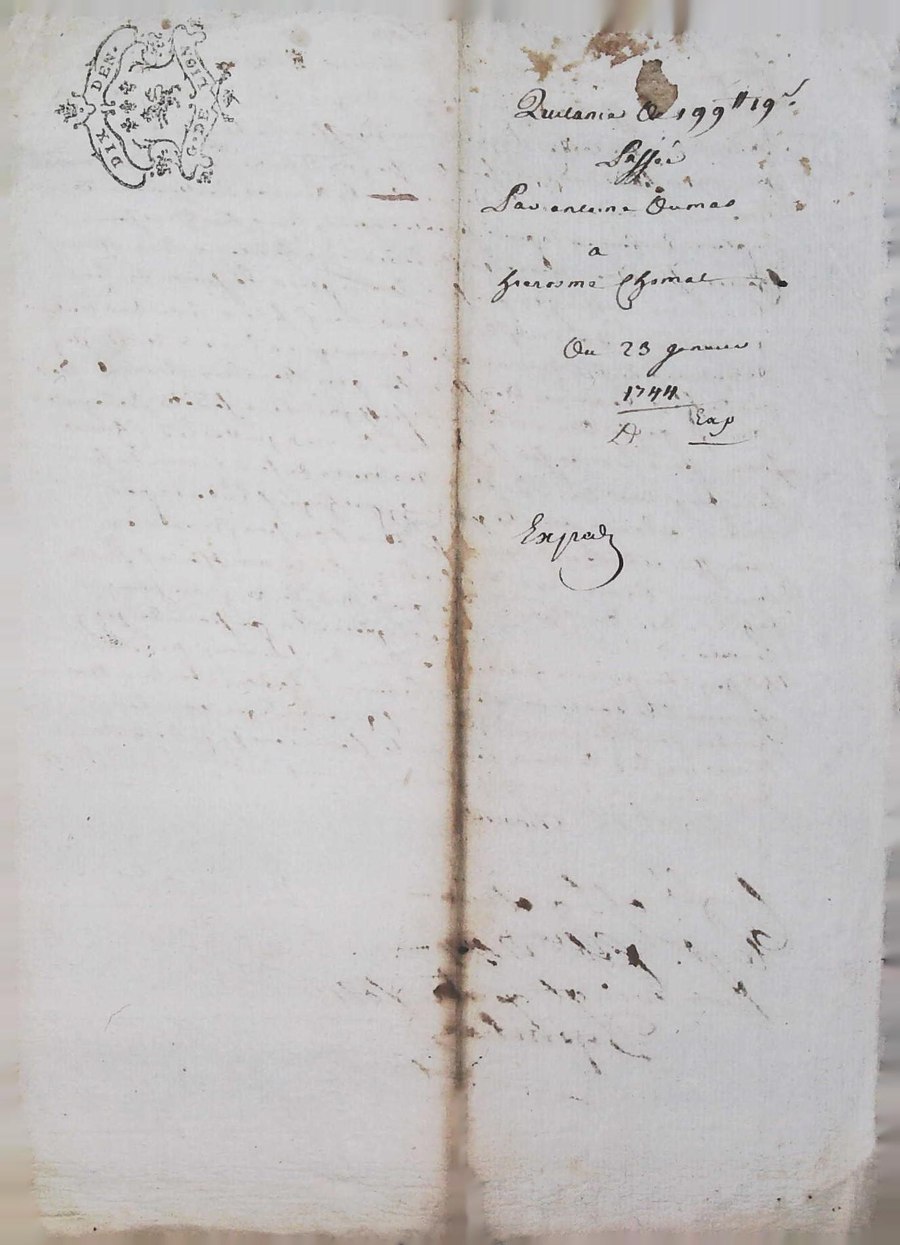 DIX DEN.
G. DE LION
Quittance De 199 ᵗᵗ 19 ˢ
Passée
Par antoine Dumas
a
hierosme Chomat
Du 23 janvier
1744
Exp
Exped